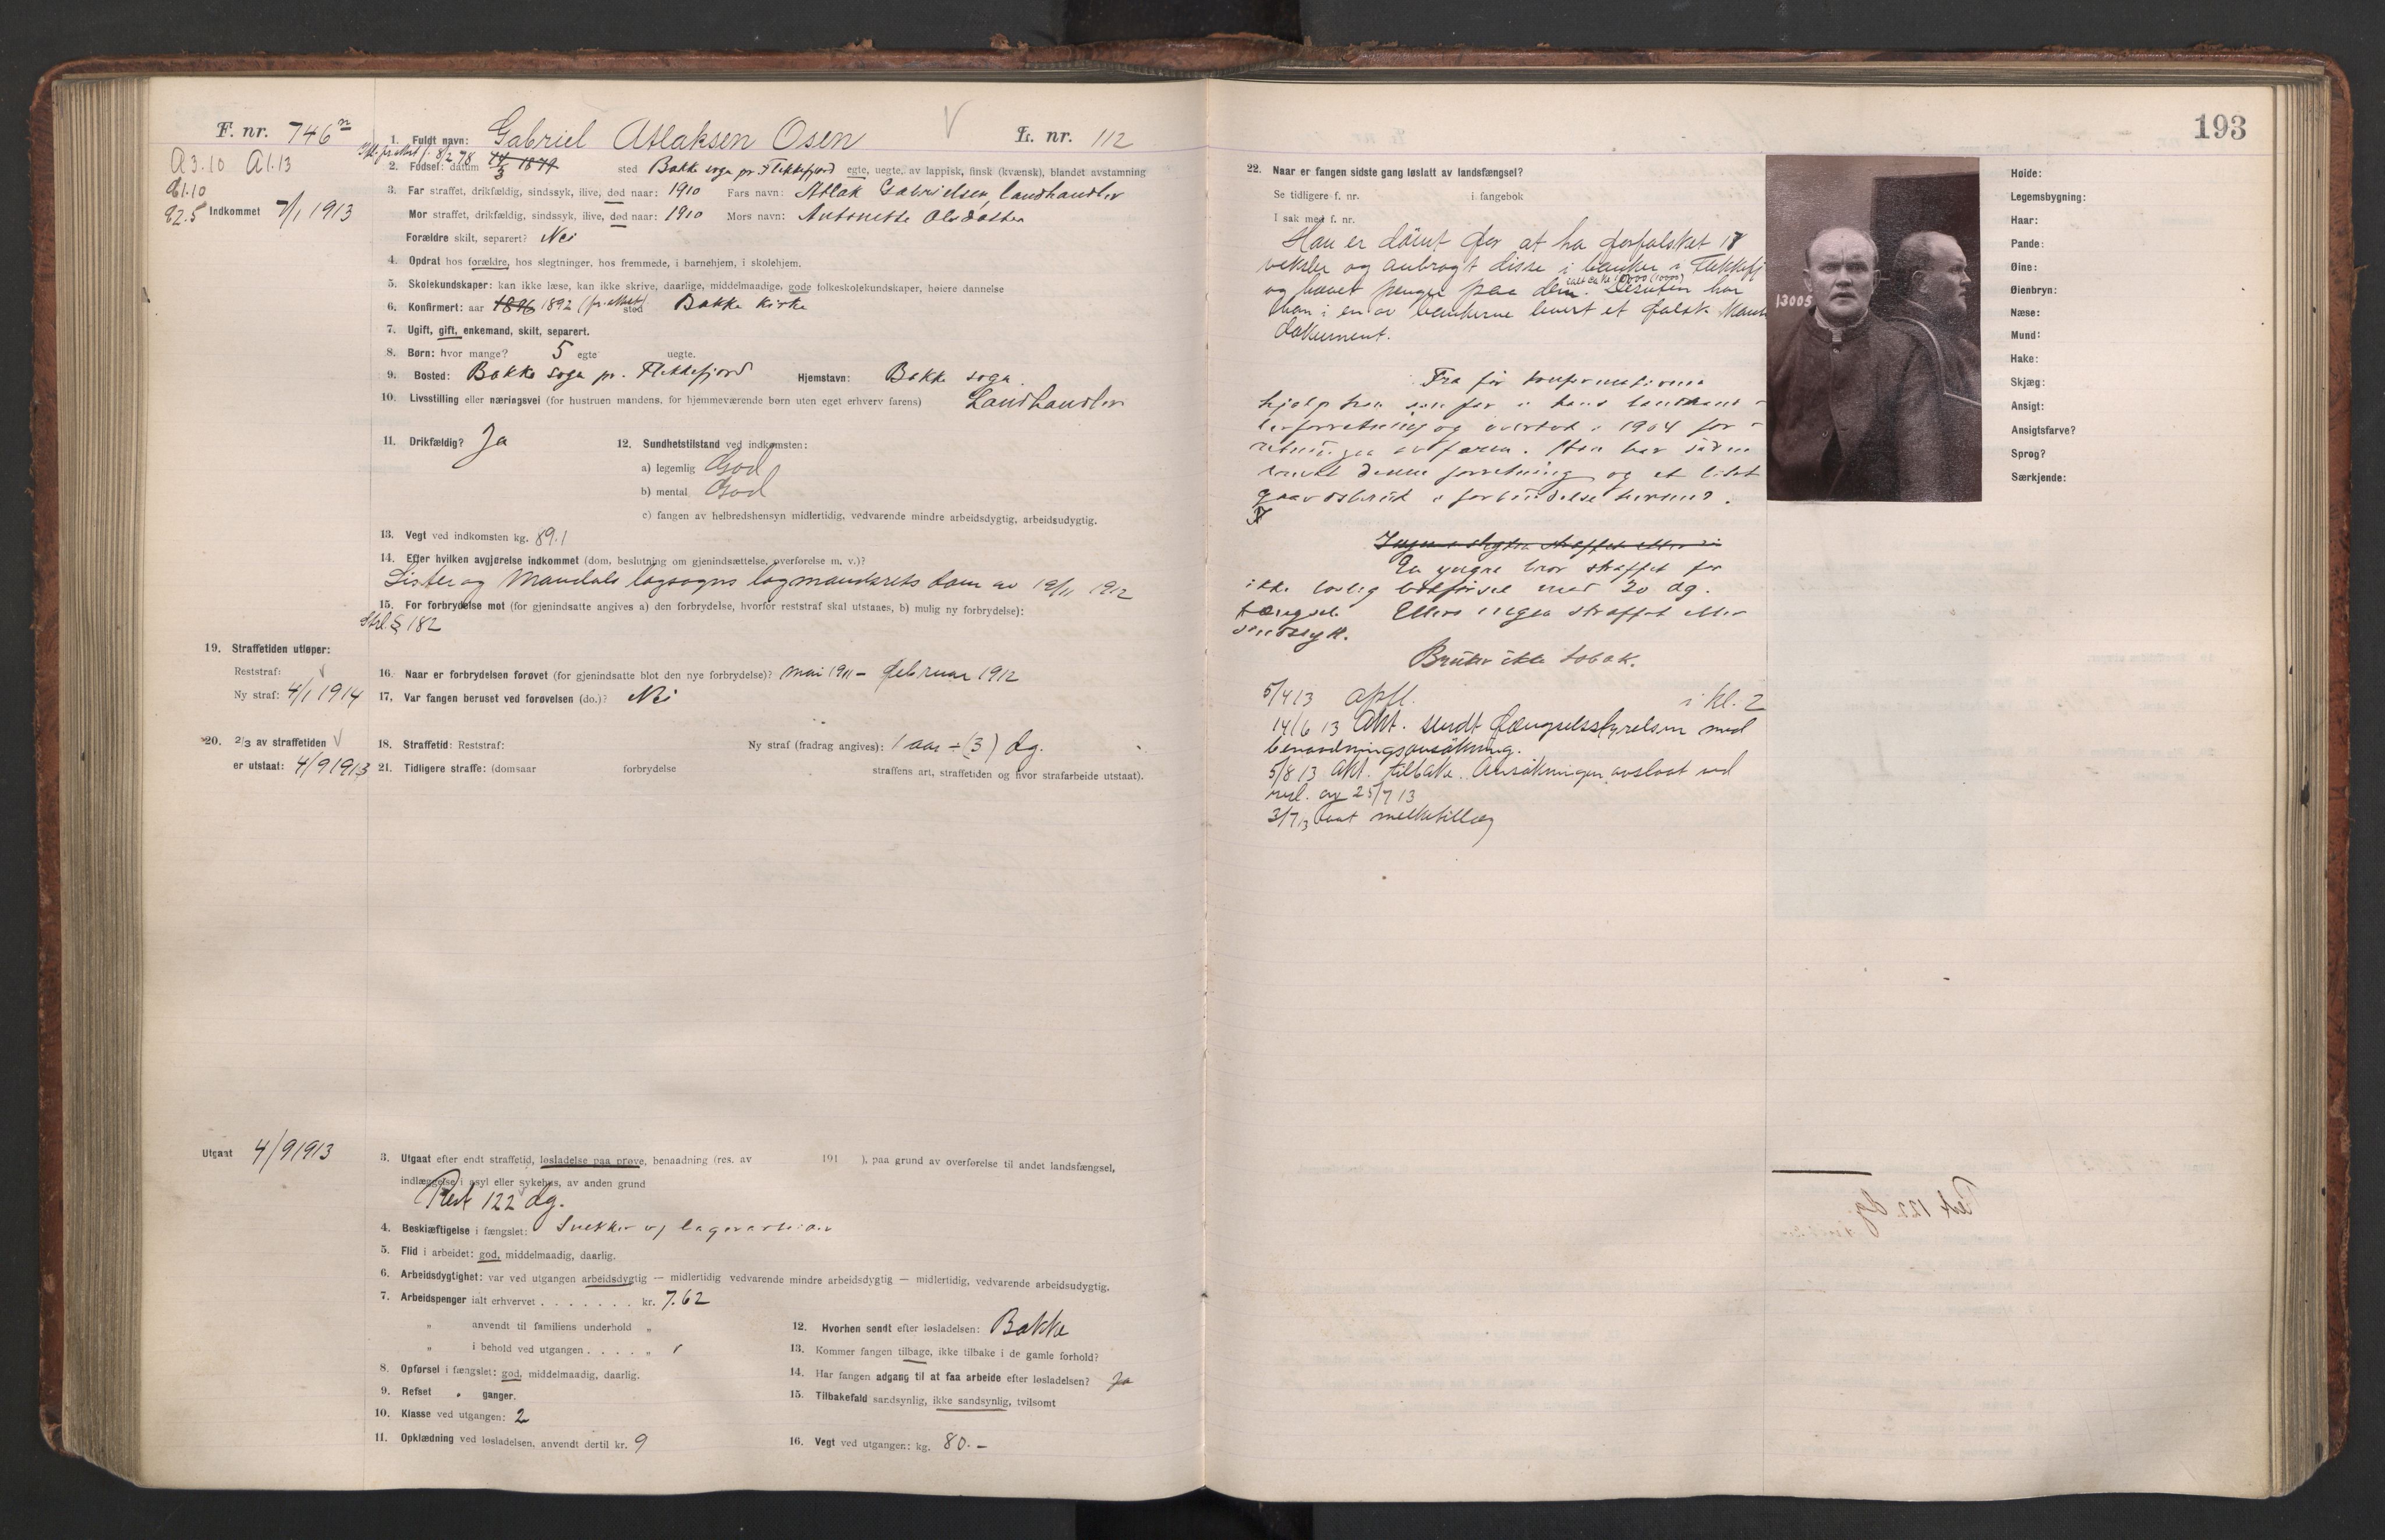 F. nr. 746
A 3.10 A 1.13
61.10
92.5 Indkommet 7/1 1913
1. Fuldt navn: Gabriel Atlaksen Osen L. nr. 112
2. Fødsel: datum 8/2 78 14/3 1879 sted Bakke sogn pr. Flekkefjord egte, uegte, av lappisk, finsk (kvænsk), blandet avstamning
3. Far straffet, drikfældig, sindssyk, ilive, død naar: 1910 Fars navn: Atlak Gabrielsen, Landhandler
Mor straffet, drikfældig, sindssyk, ilive, død naar: 1910 Mors navn: Antonette Olsdatter
Forældre skilt, separert? Nei
4. Opdrat hos forældre, hos slegtninger, hos fremmede, i barnehjem, i skolehjem.
5. Skolekundskaper: kan ikke læse, kan ikke skrive, daarlige, middelmaadige, gode folkeskolekundskaper, høiere dannelse
6. Konfirmert: aar 1896 1892 (fr. attest) sted Bakke Kirke
7. Ugift, gift, enkemand, skilt, separert.
8. Børn: hvor mange? 5 egte uegte.
9. Bosted: Bakke sogn pr. Flekkefjord Hjemstavn: Bakke sogn.
10. Livsstilling eller næringsvei (for hustruen mandens, for hjemmeværende børn uten eget erhverv farens) Landhandler
11. Drikfældig? Ja 12. Sundhetstilstand ved indkomsten:
a) legemlig God
b) mental God
c) fangen av helbredshensyn midlertidig, vedvarende mindre arbeidsdygtig, arbeidsudygtig.
13. Vegt ved indkomsten kg. 89.1
14. Efter hvilken avgjørelse indkommet (dom, beslutning om gjenindsættelse, overførelse m. v.)?
Lister og Mandals lagsogns lagmandsrets dom av 19/11 1912
15. For forbrydelse mot (for gjenindsatte angives a) den forbrydelse, hvorfor reststraf skal utstaaes, b) mulig ny forbrydelse):
Strl. § 182
19. Straffetiden utløper:
Reststraf:
Ny straf: 4/1 1914
16. Naar er forbrydelsen forøvet (for gjenindsatte blot den nye forbrydelse)? Mai 1911 – februar 1912
17. Var fangen beruset ved forøvelsen (do.)? Nei
20. 2/3 av straffetiden
er utstaat: 4/9 1913
18. Straffetid: Reststraf: Ny straf (fradrag angives): 1 aar ÷ (3) dg.
21. Tidligere straffe: (domsaar forbrydelse straffens art, straffetiden og hvor strafarbeide utstaat).
Utgaat 4/9 1913
3. Utgaat efter endt straffetid, løsladelse paa prøve, benaadning (res. av 191 ), paa grund av overførelse til andet landsfængsel,
indlæggelse i asyl eller sykehus, av anden grund
Rest 122 dg.
4. Beskjæftigelse i fængslet: Snekker og lagerarbeider
5. Flid i arbeidet: god, middelmaadig, daarlig.
6. Arbeidsdygtighet: var ved utgangen arbeidsdygtig — midlertidig vedvarende mindre arbeidsdygtig — midlertidig, vedvarende arbeidsudygtig.
7. Arbeidspenger ialt erhvervet . . . . . . . kr. 7.62
" anvendt til familiens underhold "
" i behold ved utgangen . . . . "
8. Opførsel i fængslet: god, middelmaadig, daarlig.
9. Refset ganger.
10. Klasse ved utgangen: 2
11. Opklædning ved løsladelsen, anvendt dertil kr. 9
12. Hvorhen sendt efter løsladelsen: Bakke
13. Kommer fangen tilbage, ikke tilbake i de gamle forhold?
14. Har fangen adgang til at faa arbeide efter løsladelsen? Ja
15. Tilbakefald sandsynlig, ikke sandsynlig, tvilsomt
16. Vegt ved utgangen: kg. 80.–
193
22. Naar er fangen sidste gang løslatt av landsfængsel?
Se tidligere f. nr. i fangebok
I sak med f. nr.
Han er dömt for at ha forfalsket 18
veksler og anbragt disse i banker i Flekkefj
og hævet penger paa dem. Desuten har
han i en av bankerne levert et falsk
dokument.
Fra før konfirmationen
hjalp han sin far i hans landhand-
lerforretning og overtok i 1904 for-
retningen av faren. Han har siden
drevet denne forretning og et litet
gaardsbruk i forbindelse hermed.
Ingen slegtn straffet eller
En yngre bror straffet for
ikke lovlig bokførsel med 30 dg.
fængsel. Ellers ingen straffet eller
sindssyk.
Bruker ikke tobak.
5/4 13 opfl. i Kl. 2
14/6 13 Akt. sendt fængselsstyrelsen med
benaadningsansökning.
5/8 13 Akt. tilbake. Ansökningen avslaat ved
resl. av 25/7 13
3/7 13 faat melketillæg
13005
Høide:
Legemsbygning:
Haar:
Pande:
Øine:
Øienbryn:
Næse:
Mund:
Hake:
Skjæg:
Ansigt:
Ansigtsfarve?
Sprog?
Særkjende: